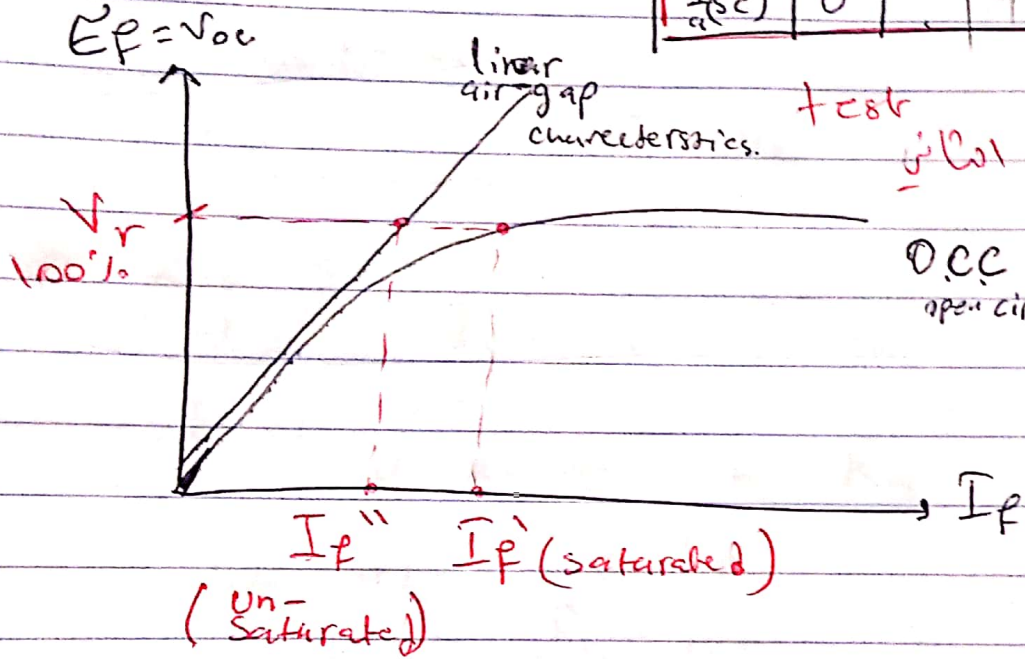 Ef = Voc
a(sc) 0
linear
air-gap
charecterstics.
test
Vr
100%
O.C.C
open cir
If
If'' If' (saturated)
(un-
saturated)